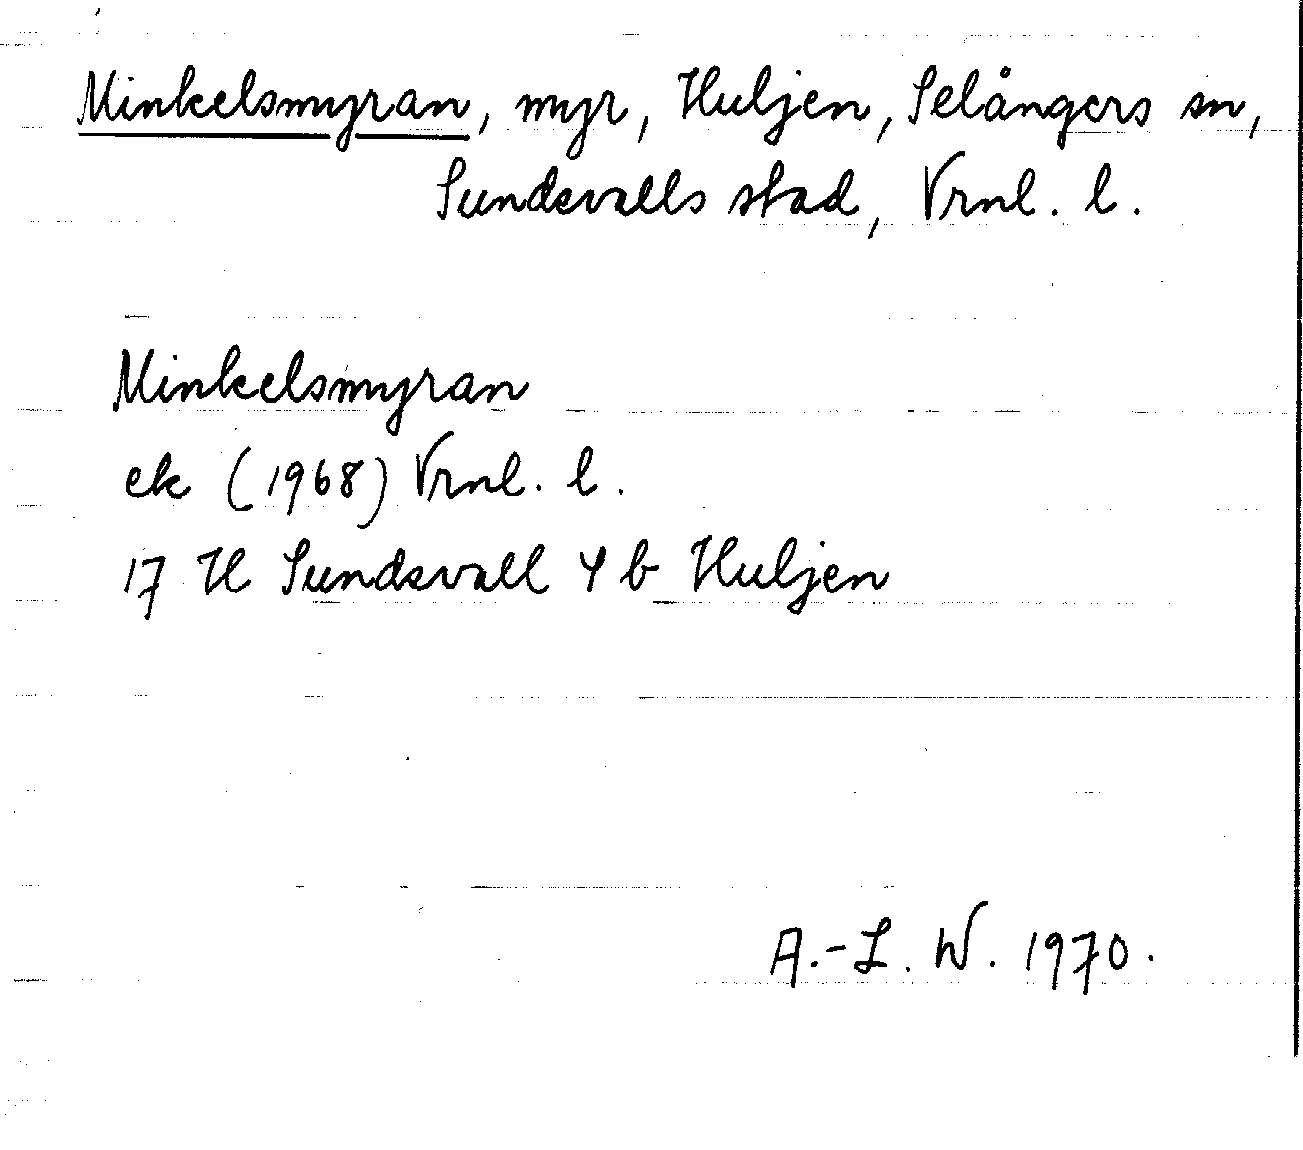 Minkelsmyran, myr, Huljen, Selångers sn,
Sundsvalls stad, Vrnl. l.
Minkelsmyran
ek (1968) Vrnl. l.
17 H Sundsvall 4 b Huljen
A.-L. W. 1970.